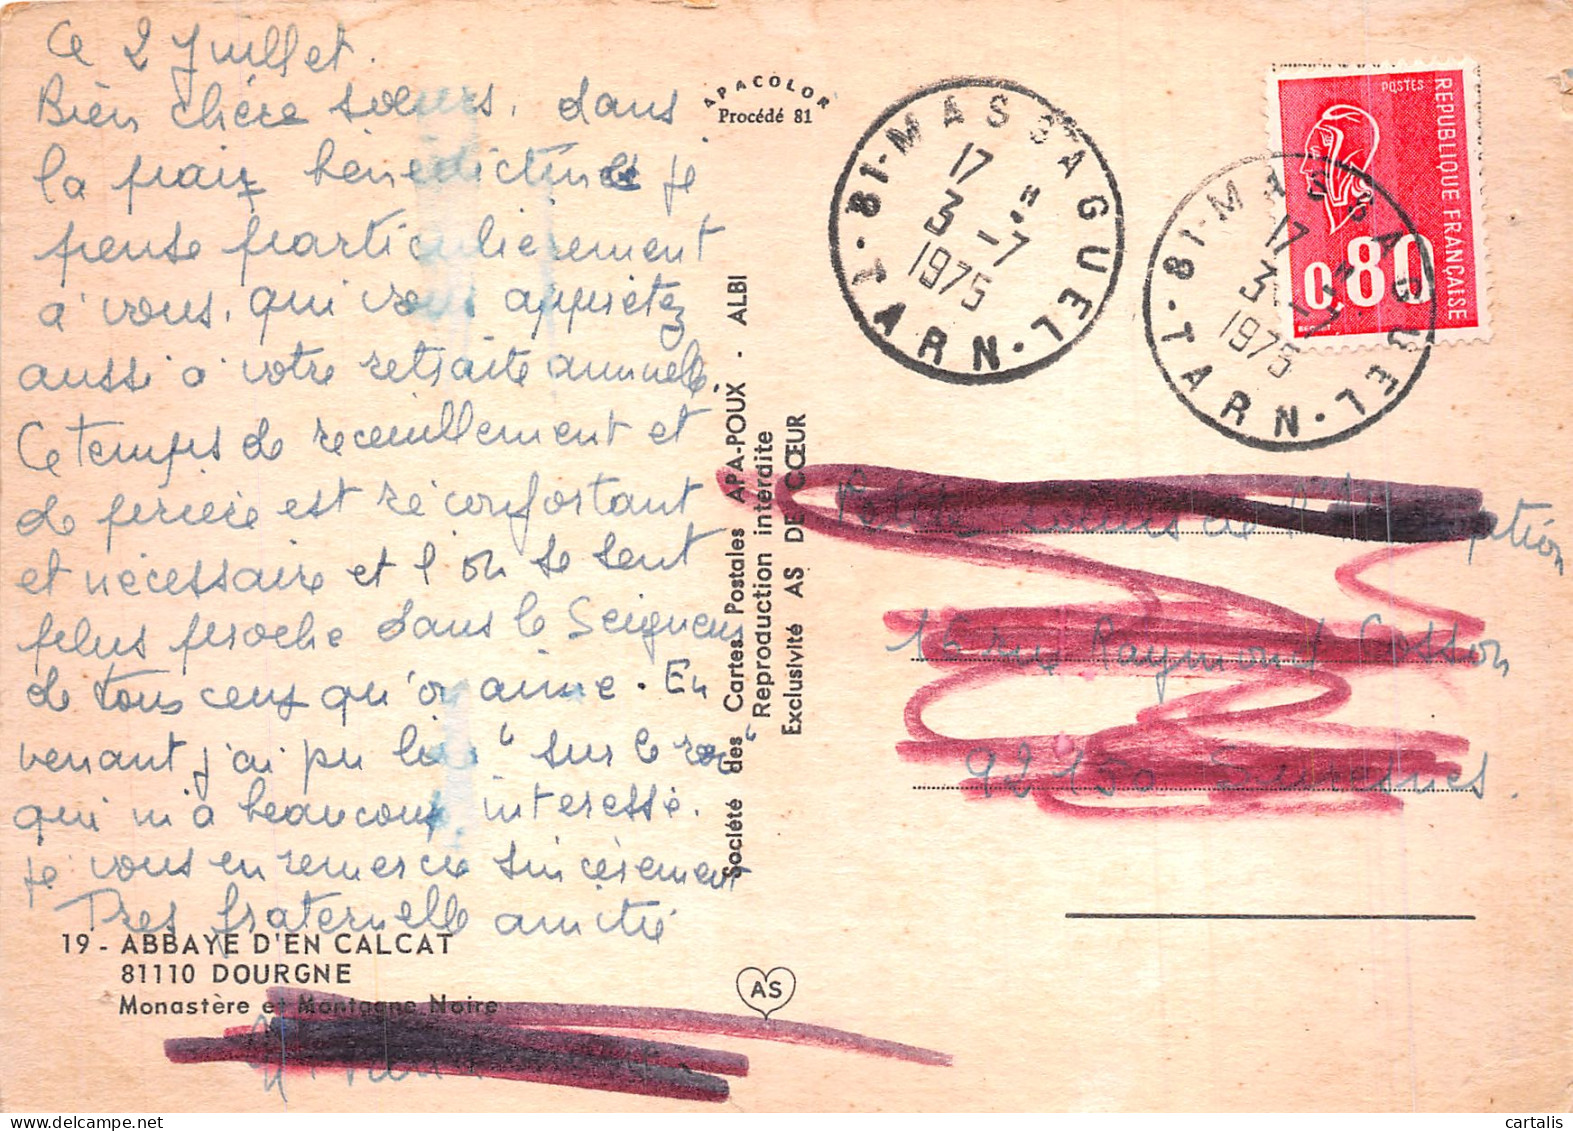 Ce 2 Juillet.
Bien chère sœurs, dans
la paix bénédictine je
pense particulièrement
à vous, qui vous apprêtez
aussi à votre retraite annuelle.
Ce temps de recueillement et
de prière est réconfortant
et nécessaire et l'on se sent
plus proche dans le Seigneur
de tous ceux qu'on aime. En
venant j'ai pu lire "sur le roc"
qui m'a beaucoup interessé.
Je vous en remercie sincèrement
Très fraternelle amitié
19 - ABBAYE D'EN CALCAT
81110 DOURGNE
Monastère et Montagne Noire
APACOLOR
Procédé 81
Société des Cartes Postales APA-POUX · ALBI
Reproduction interdite
Exclusivité AS DE CŒUR
AS
81-MASSAGUEL·TARN·
17 H
3-7
1975
81-MASSAGUEL·TARN·
17 H
3-7
1975
POSTES
REPUBLIQUE FRANÇAISE
0,80
16 rue Raymond Cosson
92150 Suresnes.
cartalis
delcampe.net